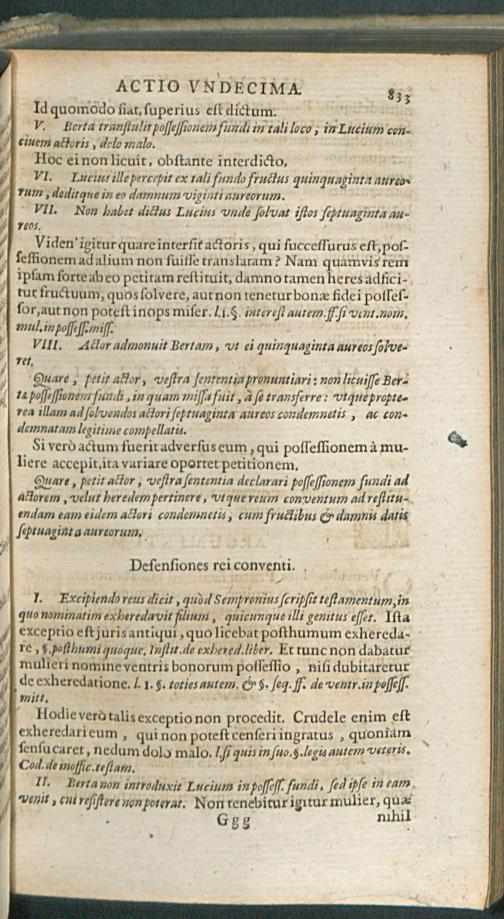 ACTIO VNDECIMA. 833
Id quomodo fiat, superius est dictum.
V. Berta transtulit possessionem fundi in tali loco, in Lucium con-
ciuem actoris, dolo malo.
Hoc ei non licuit, obstante interdicto,
VI. Lucius ille percepit ex tali fundo fructus quinquaginta aureo-
rum, deditque in eo damnum viginti aureorum.
VII. Non habet dictus Lucius vnde solvat istos septuaginta au-
reos.
Viden' igitur quare intersit actoris, qui successurus est, pos-
sessionem ad alium non fuisse translatam? Nam quamvis rem
ipsam forte ab eo petitam restituit, damno tamen heres adfici-
tur fructuum, quos solvere, aut non tenetur bonæ fidei posses-
sor, aut non potest inops miser. l.1.§. interest autem. ff. si vent. nom.
mul. in possess. miss.
VIII. Actor admonuit Bertam, vt ei quinquaginta aureos solve-
ret.
Quare, petit actor, vestra sententia pronuntiari: non licuisse Ber-
tæ possessionem fundi, in quam missa fuit, à se transferre: vtque propte-
rea illam ad solvendos actori septuaginta aureos condemnetis, ac con-
demnatam legitime compellatis.
Si verò actum fuerit adversus eum, qui possessionem à mu-
liere accepit, ita variare oportet petitionem.
Quare, petit actor, vestra sententia declarari possessionem fundi ad
actorem, velut heredem pertinere, vtque reum conventum ad restitu-
endam eam eidem actori condemnetis, cum fructibus & damnis datis
septuaginta aureorum.
Defensiones rei conventi.
I. Excipiendo reus dicit, quòd Sempronius scripsit testamentum, in
quo nominatim exheredavit filium, quicunque illi genitus esset. Ista
exceptio est juris antiqui, quo licebat posthumum exhereda-
re, §. posthumi quoque. Instit. de exhered. liber. Et tunc non dabatur
mulieri nomine ventris bonorum possessio, nisi dubitaretur
de exheredatione. l. 1. §. toties autem. & §. seq. ff. de ventr. in possess.
mitt.
Hodie verò talis exceptio non procedit. Crudele enim est
exheredari eum, qui non potest censeri ingratus, quoniam
sensu caret, nedum dolo malo. l. si quis in suo. §. legis autem veteris.
Cod. de inoffic. testam.
II. Berta non introduxit Lucium in possess. fundi, sed ipse in eam
venit, cui resistere non poterat. Non tenebitur igitur mulier, quæ
Ggg nihil